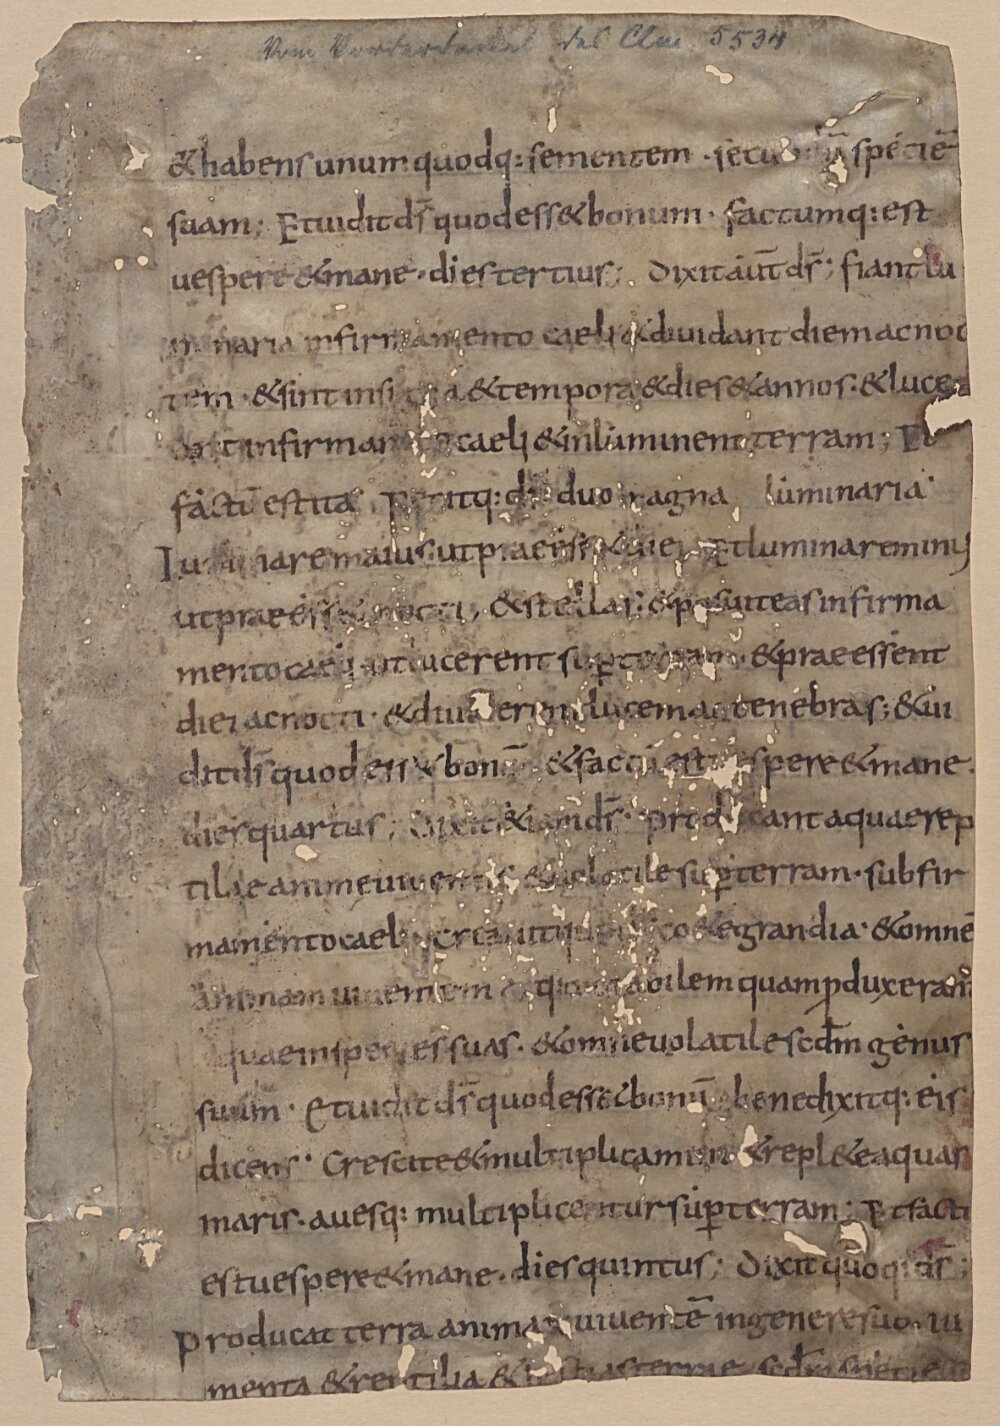 Vom Vorderdeckel des Clm 5534
& habens unumquodq: sementem · secundū speciē
suam; Et uidit d̄s quod ess& bonum · factumq: est
uespere & mane · dies tertius; Dixit aut̄ d̄s; fiant lu
minaria in firmamento caeli & diuidant diem ac noc
tem · & sint in signa & tempora & dies & annos · & luce
ant in firmamento caeli & inluminent terram; Et
factū est ita Fecitq: d̄s duo magna luminaria
Luminare maius ut praeess& diei Et luminare minus
ut praeess& nocti; & stellas · & posuit eas in firma
mento caeli ut lucerent sup̄ terram · & praeessent
diei ac nocti · & diuiderent lucem ac tenebras; & ui
dit d̄s quod ess& bonū & factū est uespere & mane ·
dies quartus; Dixit &iam d̄s · producant aquae rep
tilae anime uiuentis & uolatile sup̄ terram · sub fir
mamento caeli creauitq: d̄s c&e grandia · & omnē
animam uiuentem atq: motabilem quam ꝓduxerant
aquae in species suas · & omne uolatile scd̄m genus
suum · Et uidit d̄s quod ess& bonū benedixitq: eis
dicens · Crescite & multiplicamini & repl&e aquas
maris · auesq: multiplicentur sup̄ terram; Et factū
est uespere & mane · dies quintus; Dixit quoq: d̄s;
producat terra animā uiuentē in genere suo · iu
menta & reptilia & bestias terrae scd̄m species